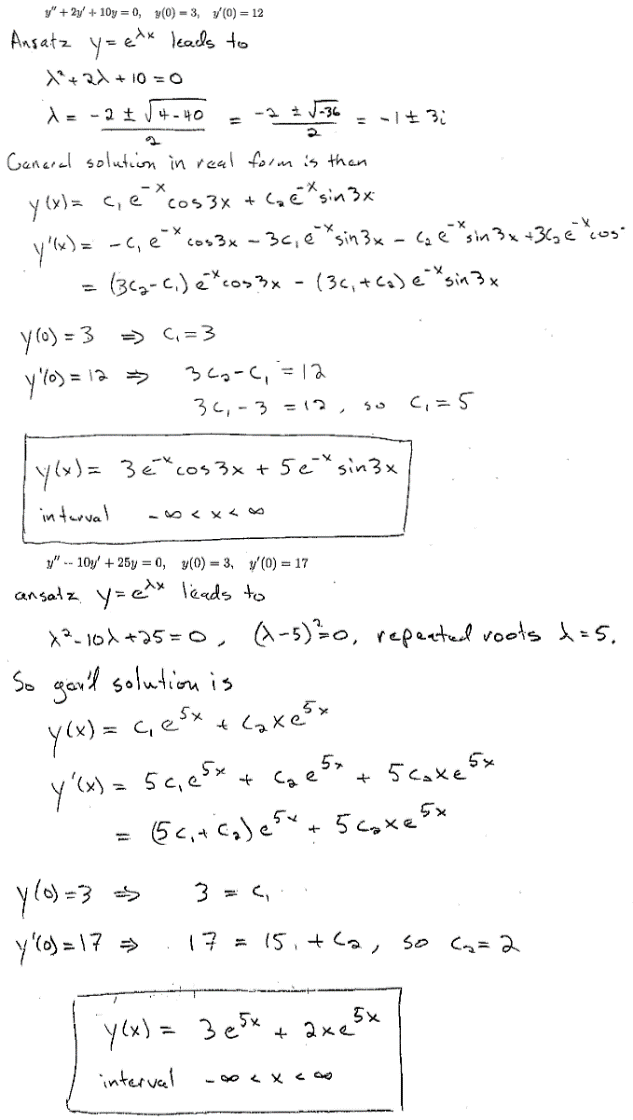 y'' + 2y' + 10y = 0, y(0) = 3, y'(0) = 12
Ansatz y = e^{λx} leads to
λ² + 2λ + 10 = 0
λ = (-2 ± √(4-40))/2 = (-2 ± √-36)/2 = -1 ± 3i
General solution in real form is then
y(x) = c₁e^{-x}cos3x + c₂e^{-x}sin3x
y'(x) = -c₁e^{-x}cos3x - 3c₁e^{-x}sin3x - c₂e^{-x}sin3x + 3c₂e^{-x}cos
= (3c₂-c₁)e^{-x}cos3x - (3c₁+c₂)e^{-x}sin3x
y(0) = 3 ⇒ c₁ = 3
y'(0) = 12 ⇒ 3c₂-c₁ = 12
3c₁-3 = 12, so c₁ = 5
y(x) = 3e^{-x}cos3x + 5e^{-x}sin3x
interval -∞ < x < ∞
y'' -- 10y' + 25y = 0, y(0) = 3, y'(0) = 17
ansatz y = e^{λx} leads to
λ² - 10λ + 25 = 0, (λ-5)² = 0, repeated roots λ = 5.
So gen'l solution is
y(x) = c₁e^{5x} + c₂xe^{5x}
y'(x) = 5c₁e^{5x} + c₂e^{5x} + 5c₂xe^{5x}
= (5c₁+c₂)e^{5x} + 5c₂xe^{5x}
y(0) = 3 ⇒ 3 = c₁
y'(0) = 17 ⇒ 17 = 15 + c₂, so c₂ = 2
y(x) = 3e^{5x} + 2xe^{5x}
interval -∞ < x < ∞